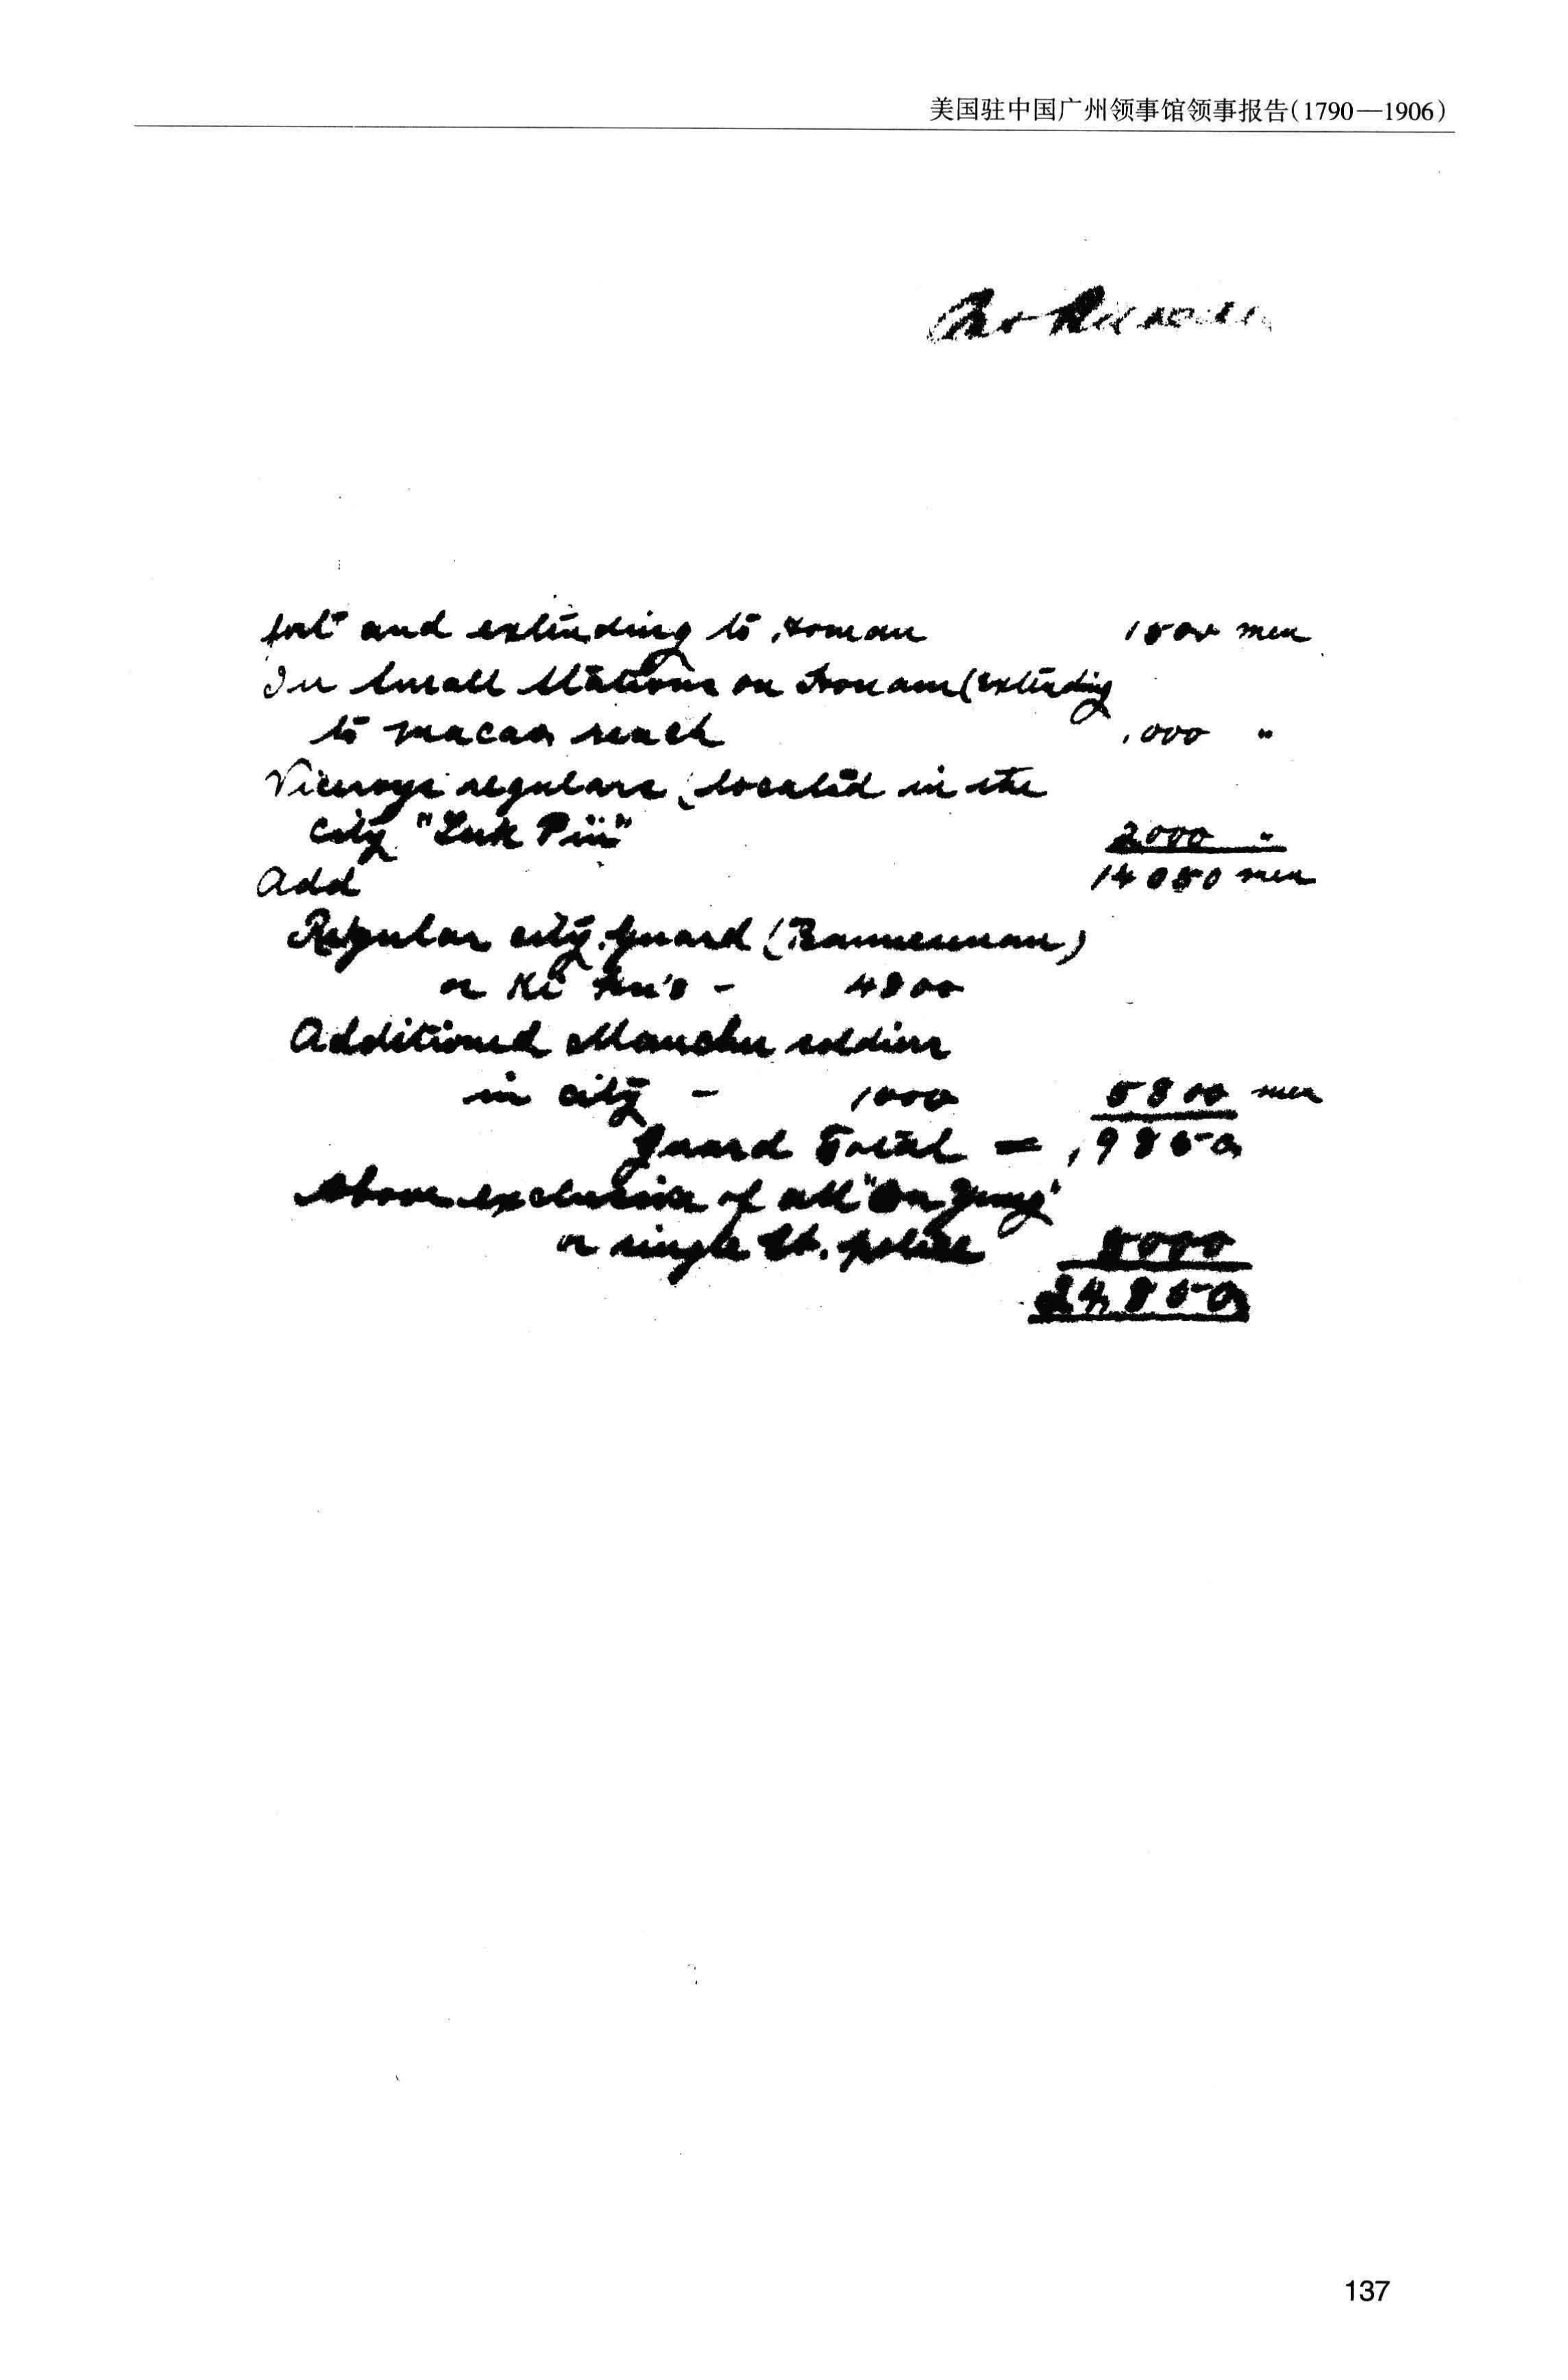 美国驻中国广州领事馆领事报告(1790—1906)
fort and extending to Honam 1500 men
In small stations on Honam (extending
to macao reach 1000 "
Viceroys regulars (located in the
city "Luk Pin" 2000 "
Add 14050 men
Regular city guard (Bannerman)
or Ki 's - 4800
Additional Manchu soldiers
in city - 1000 5800 men
Grand Total = 19850
Above exclusive of all "On Yung"
or single St. police 5000
24,850
137